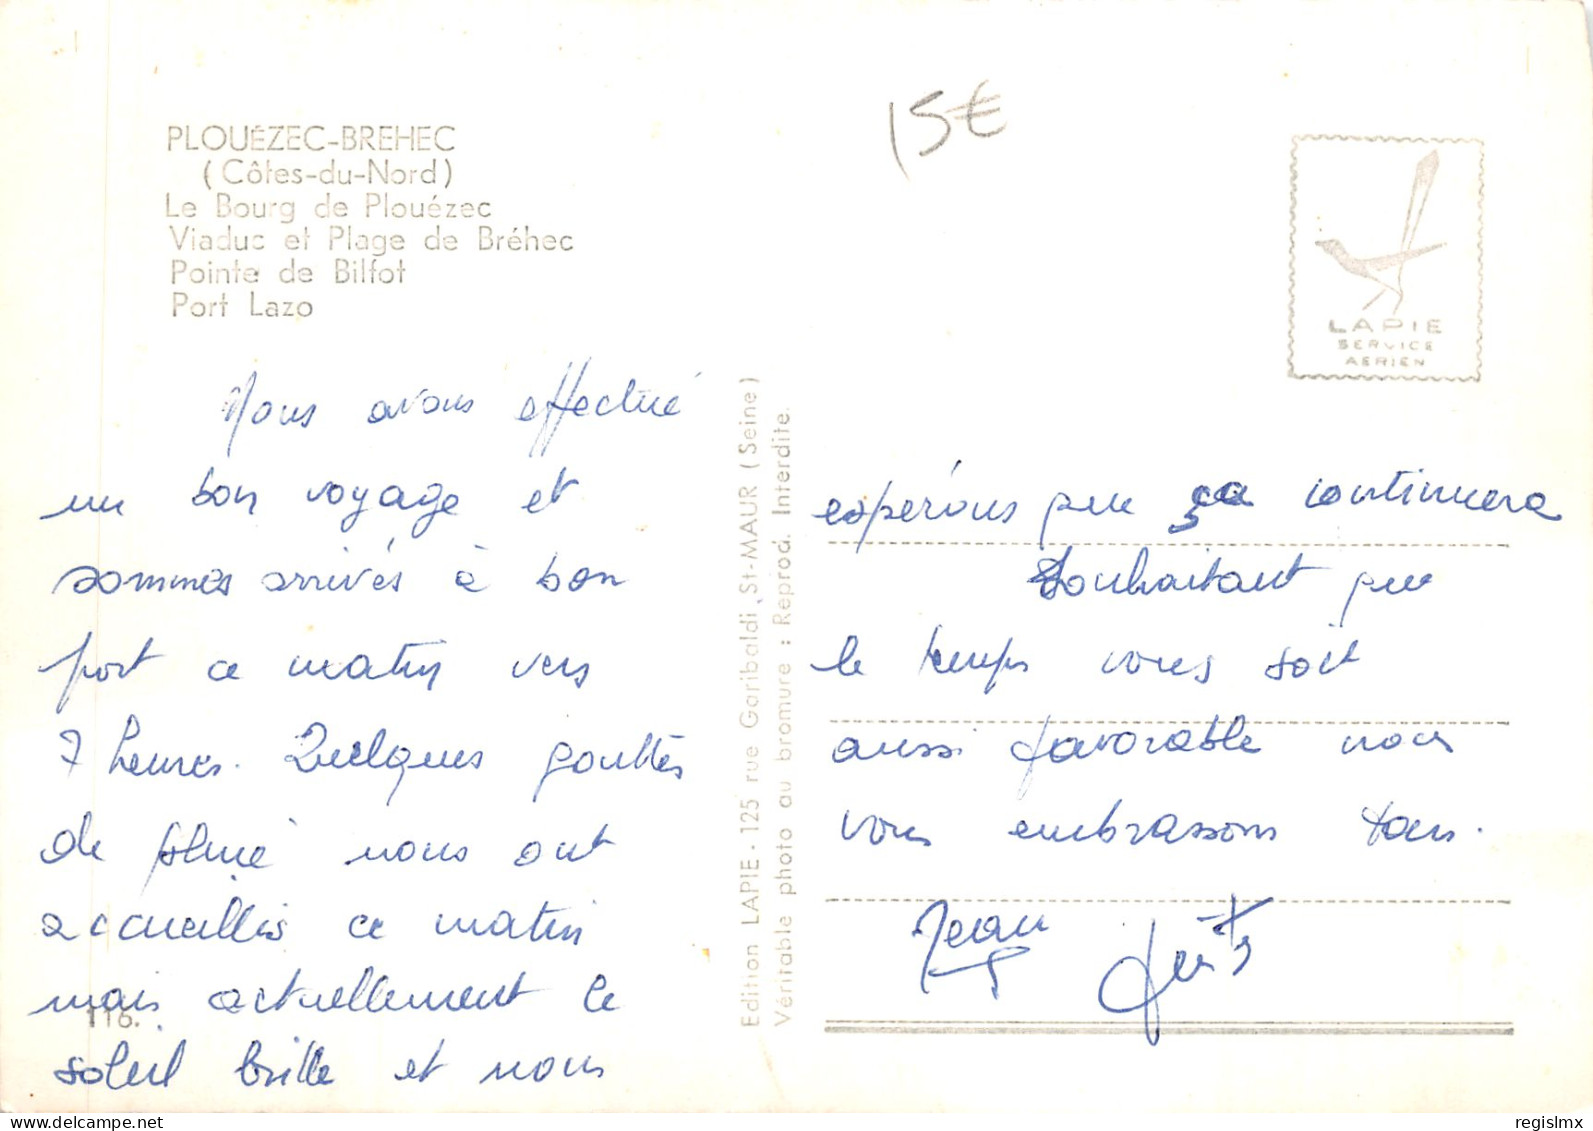 PLOUÉZEC-BREHEC
(Côtes-du-Nord)
Le Bourg de Plouézec
Viaduc et Plage de Bréhec
Pointe de Bilfot
Port Lazo
15€
LAPIE
SERVICE
AERIEN
Nous avons effectué
un bon voyage et
sommes arrivés à bon
port ce matin vers
7 heures. Quelques gouttes
de pluie nous ont
accueillis ce matin
mais actuellement le
soleil brille et nous
116.
Edition LAPIE - 125 rue Garibaldi, St-MAUR (Seine)
Véritable photo au bromure : Reprod. Interdite.
espérons que ça continuera
Souhaitant que
le temps vous soit
aussi favorable nous
vous embrassons tous.
Jean
regislmx
delcampe.net